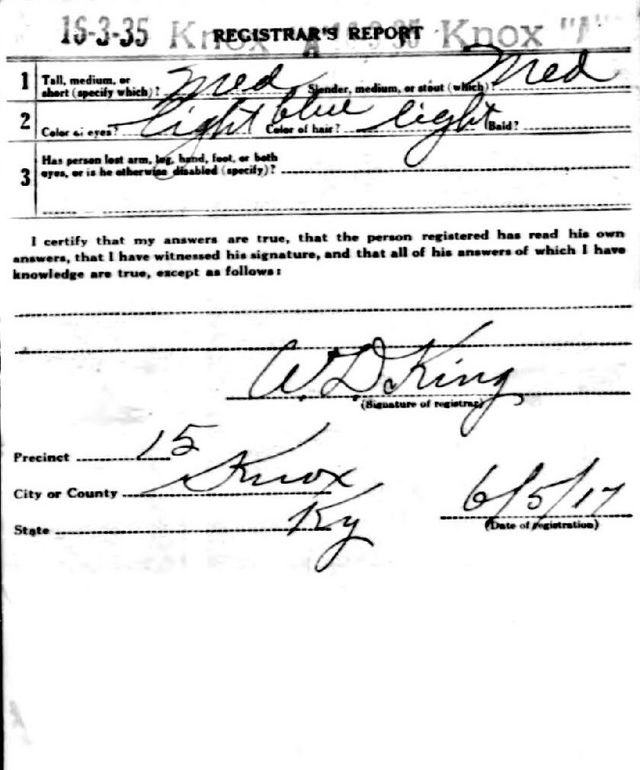 16-3-35 Knox "A" 16-3-35 Knox "A"
REGISTRAR'S REPORT
1 Tall, medium, or short (specify which)? Med Slender, medium, or stout (which)? Med
2 Color of eyes? light blue Color of hair? light Bald?
3 Has person lost arm, leg, hand, foot, or both
eyes, or is he otherwise disabled (specify)?
I certify that my answers are true, that the person registered has read his own
answers, that I have witnessed his signature, and that all of his answers of which I have
knowledge are true, except as follows:
W. D. King
(Signature of registrar)
Precinct 15
City or County Knox
State Ky
6/5/17
(Date of registration)